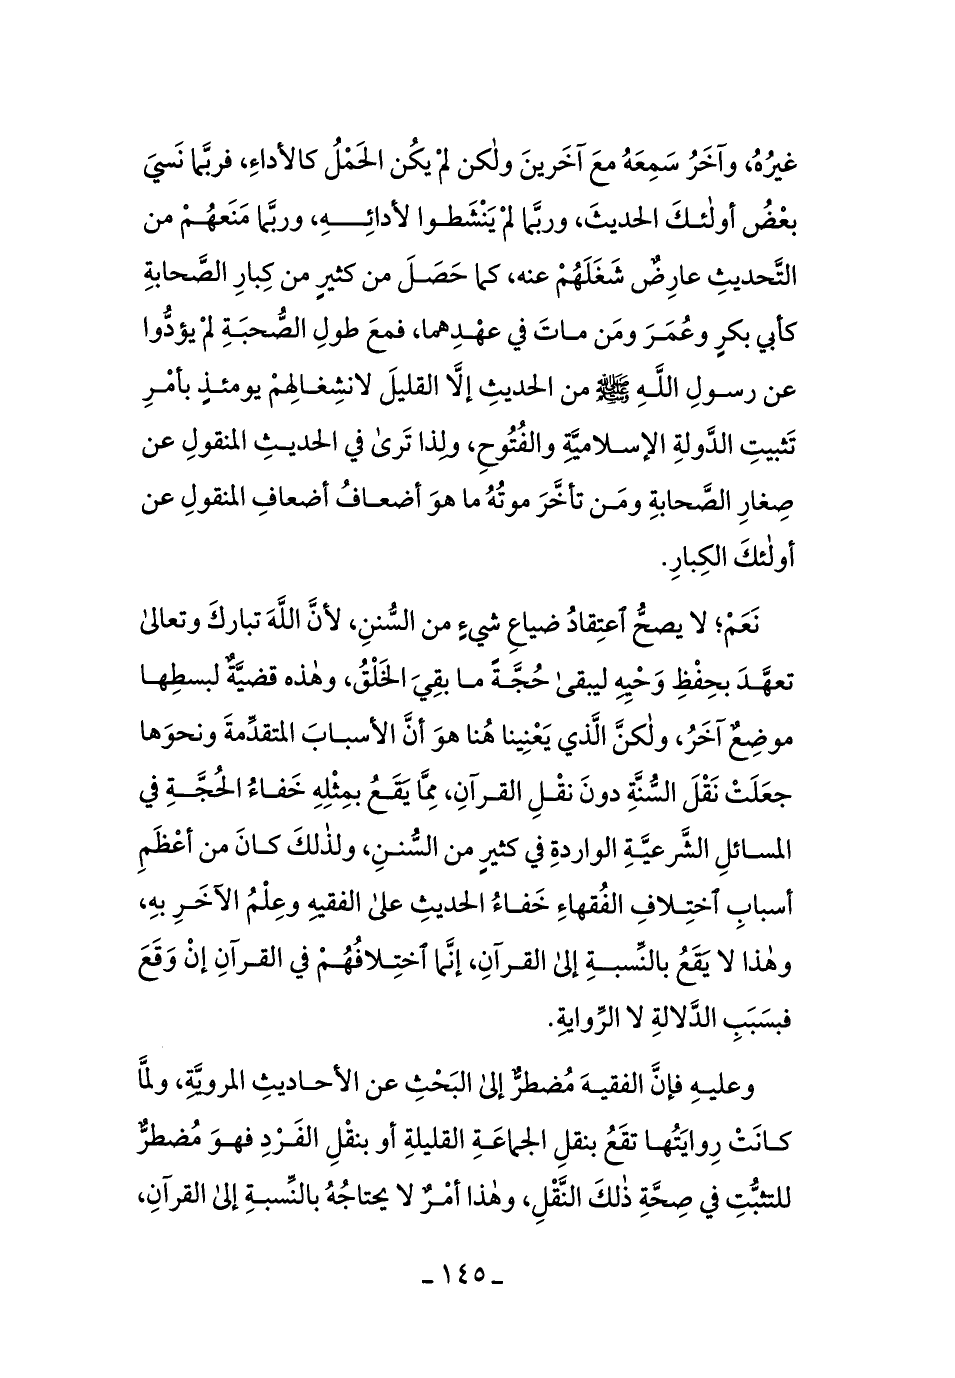 غيرُهُ، وآخَرُ سَمِعَهُ معَ آخَرينَ ولٰكن لمْ يكُن الحَمْلُ كالأداءِ، فربَّما نَسيَ
بعْضُ أولٰئـكَ الحديثَ، وربَّما لمْ يَنْشَطـوا لأدائِـــهِ، وربَّما مَنَعهُـمْ من
التَّحديثِ عارِضٌ شَغَلَهُمْ عنه، كما حَصَـلَ من كثيرٍ من كِبارِ الصَّحابةِ
كأبي بكرٍ وعُمَـرَ ومَن مـاتَ في عهْـدِهما، فمعَ طولِ الصُّحبَـةِ لمْ يؤدُّوا
عن رسـولِ اللَّـهِ ﷺ من الحديثِ إلَّا القليلَ لانشِغـالِهمْ يومئـذٍ بأمْـرِ
تَثبيتِ الدَّولةِ الإسـلاميَّةِ والفُتُوحِ، ولِذا تَرىٰ في الحديـثِ المنقولِ عن
صِغارِ الصَّحابةِ ومَـن تأخَّرَ موتُهُ ما هوَ أضعـافُ أضعافِ المنقولِ عن
أولٰئكَ الكِبارِ.
نَعَمْ؛ لا يصحُّ ٱعتِقادُ ضياعِ شيءٍ من السُّننِ، لأنَّ اللَّهَ تباركَ وتعالىٰ
تعهَّـدَ بحِفْظِ وَحْيِهِ ليبقىٰ حُجَّـةً مـا بقِيَ الخَلْقُ، وهٰذه قضيَّةٌ لبسطِهـا
موضِعٌ آخَرُ، ولٰكنَّ الَّذي يَعْنِينا هُنا هوَ أنَّ الأسبـابَ المتقدِّمةَ ونحوَها
جعَلَتْ نَقْلَ السُّنَّةِ دونَ نقْـلِ القـرآنِ، مِمَّا يَقَـعُ بمِثْلِهِ خَفـاءُ الحُجَّـةِ في
المسـائلِ الشَّرعيَّـةِ الواردةِ في كثيرٍ من السُّنـنِ، ولذٰلكَ كـانَ من أعْظَمِ
أسبابِ ٱختِـلافِ الفُقهاءِ خَفـاءُ الحديثِ علىٰ الفقيهِ وعِلْمُ الآخَـرِ بهِ،
وهٰذا لا يَقَعُ بالنِّسبـةِ إلىٰ القـرآنِ، إنَّما ٱختِـلافُهُـمْ في القـرآنِ إنْ وَقَعَ
فبسَبَبِ الدَّلالةِ لا الرِّوايةِ.
وعليـهِ فإنَّ الفقيـهَ مُضطرٌّ إلىٰ البَحْثِ عن الأحـاديثِ المرويَّةِ، ولمَّا
كـانَتْ رِوايَتُهـا تقَعُ بنقلِ الجماعَـةِ القليلةِ أو بنقْلِ الفَـرْدِ فهـو مُضطرٌّ
للتثبُّتِ في صِحَّةِ ذٰلكَ النَّقْلِ، وهٰذا أمْـرٌ لا يحتاجُهُ بالنِّسبـةِ إلىٰ القرآنِ،
ـ ١٤٥ ـ